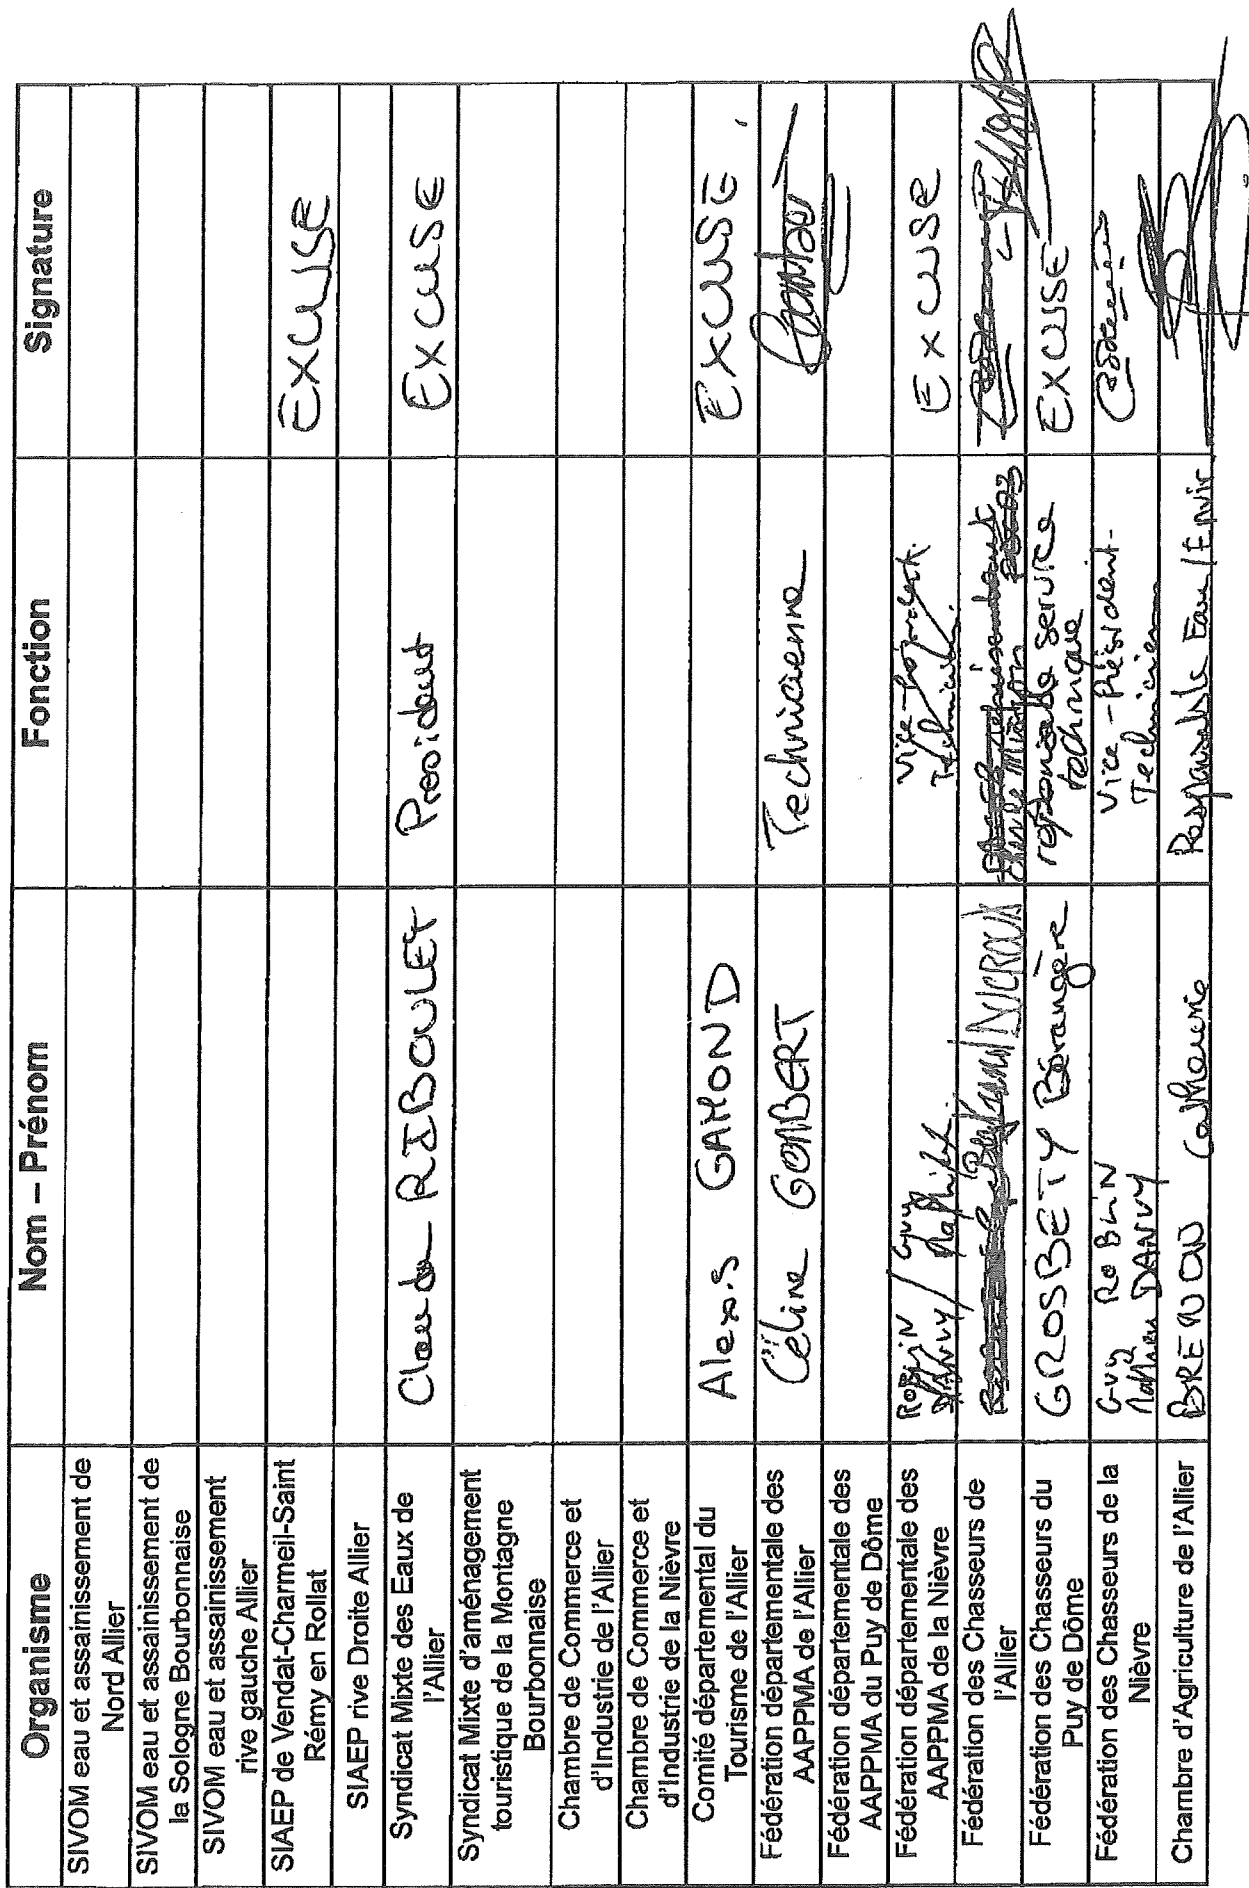 Organisme Nom – Prénom Fonction Signature
SIVOM eau et assainissement de
Nord Allier
SIVOM eau et assainissement de
la Sologne Bourbonnaise
SIVOM eau et assainissement
rive gauche Allier
SIAEP de Vendat-Charmeil-Saint
Rémy en Rollat
EXCUSE
SIAEP rive Droite Allier
Syndicat Mixte des Eaux de
l'Allier
Claude RIBOULET President EXCUSE
Syndicat Mixte d'aménagement
touristique de la Montagne
Bourbonnaise
Chambre de Commerce et
d'Industrie de l'Allier
Chambre de Commerce et
d'Industrie de la Nièvre
Comité départemental du
Tourisme de l'Allier
Alexis GAMOND EXCUSE
Fédération départementale des
AAPPMA de l'Allier
Céline GOMBERT Technicienne
Fédération départementale des
AAPPMA du Puy de Dôme
Fédération départementale des
AAPPMA de la Nièvre
ROBLIN Guy
DANVY /
Vice-Président
Technicien
EXCUSE
Fédération des Chasseurs de
l'Allier
Fédération des Chasseurs du
Puy de Dôme
GROSBETY Bérangère
responsable service
technique
EXCUSE
Fédération des Chasseurs de la
Nièvre
Guy ROBLIN
DANVY
Vice-Président-
Technicien
Chambre d'Agriculture de l'Allier
BRENON Catherine Responsable Eau/Envir